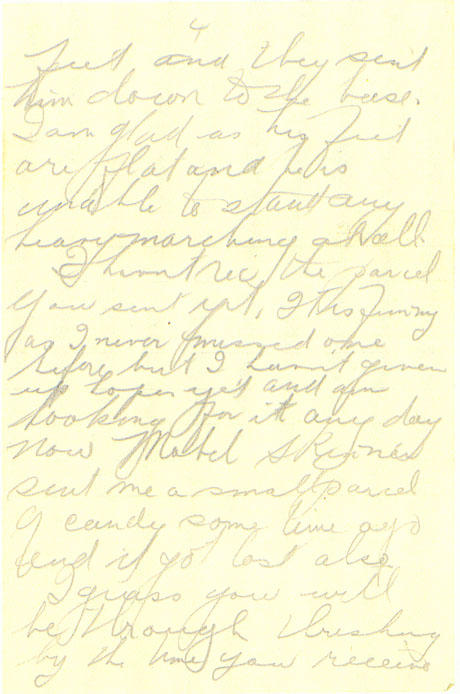 4
feet and they sent
him down to the base.
I am glad as his feet
are flat and he is
unable to stant any
heavy marching at all
I havnt rec the parcel
you sent yet, It is funny
as I never missed one
before but I havnt given
up hopes yet and am
looking for it any day
now Mabel Skinner
sent me a small parcel
of candy some time ago
and it got lost also.
I guess you will
be through threshing
by the time you receive